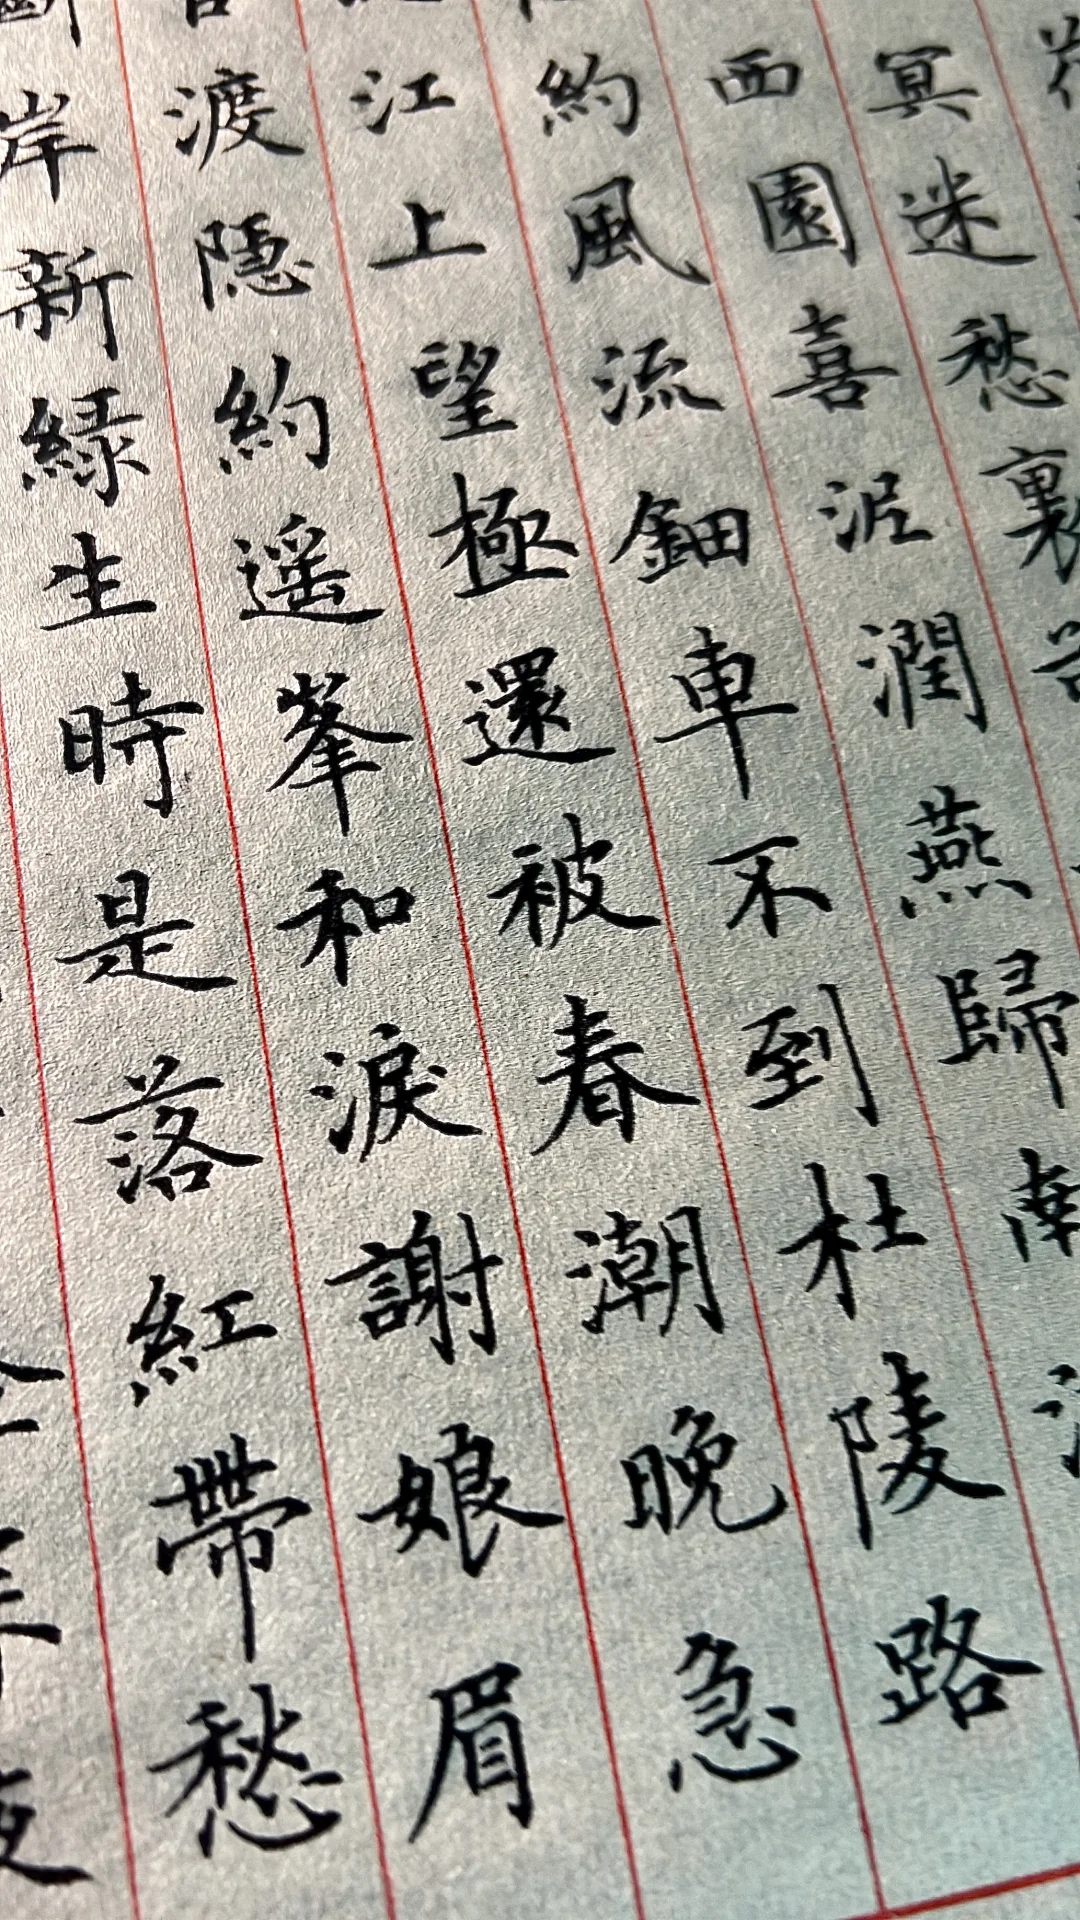 冥迷愁裏
西園喜泥潤燕歸南
約風流鈿車不到杜陵路
江上望極還被春潮晚急
渡隱約遥峯和淚謝娘眉
岸新緑生時是落紅帶愁